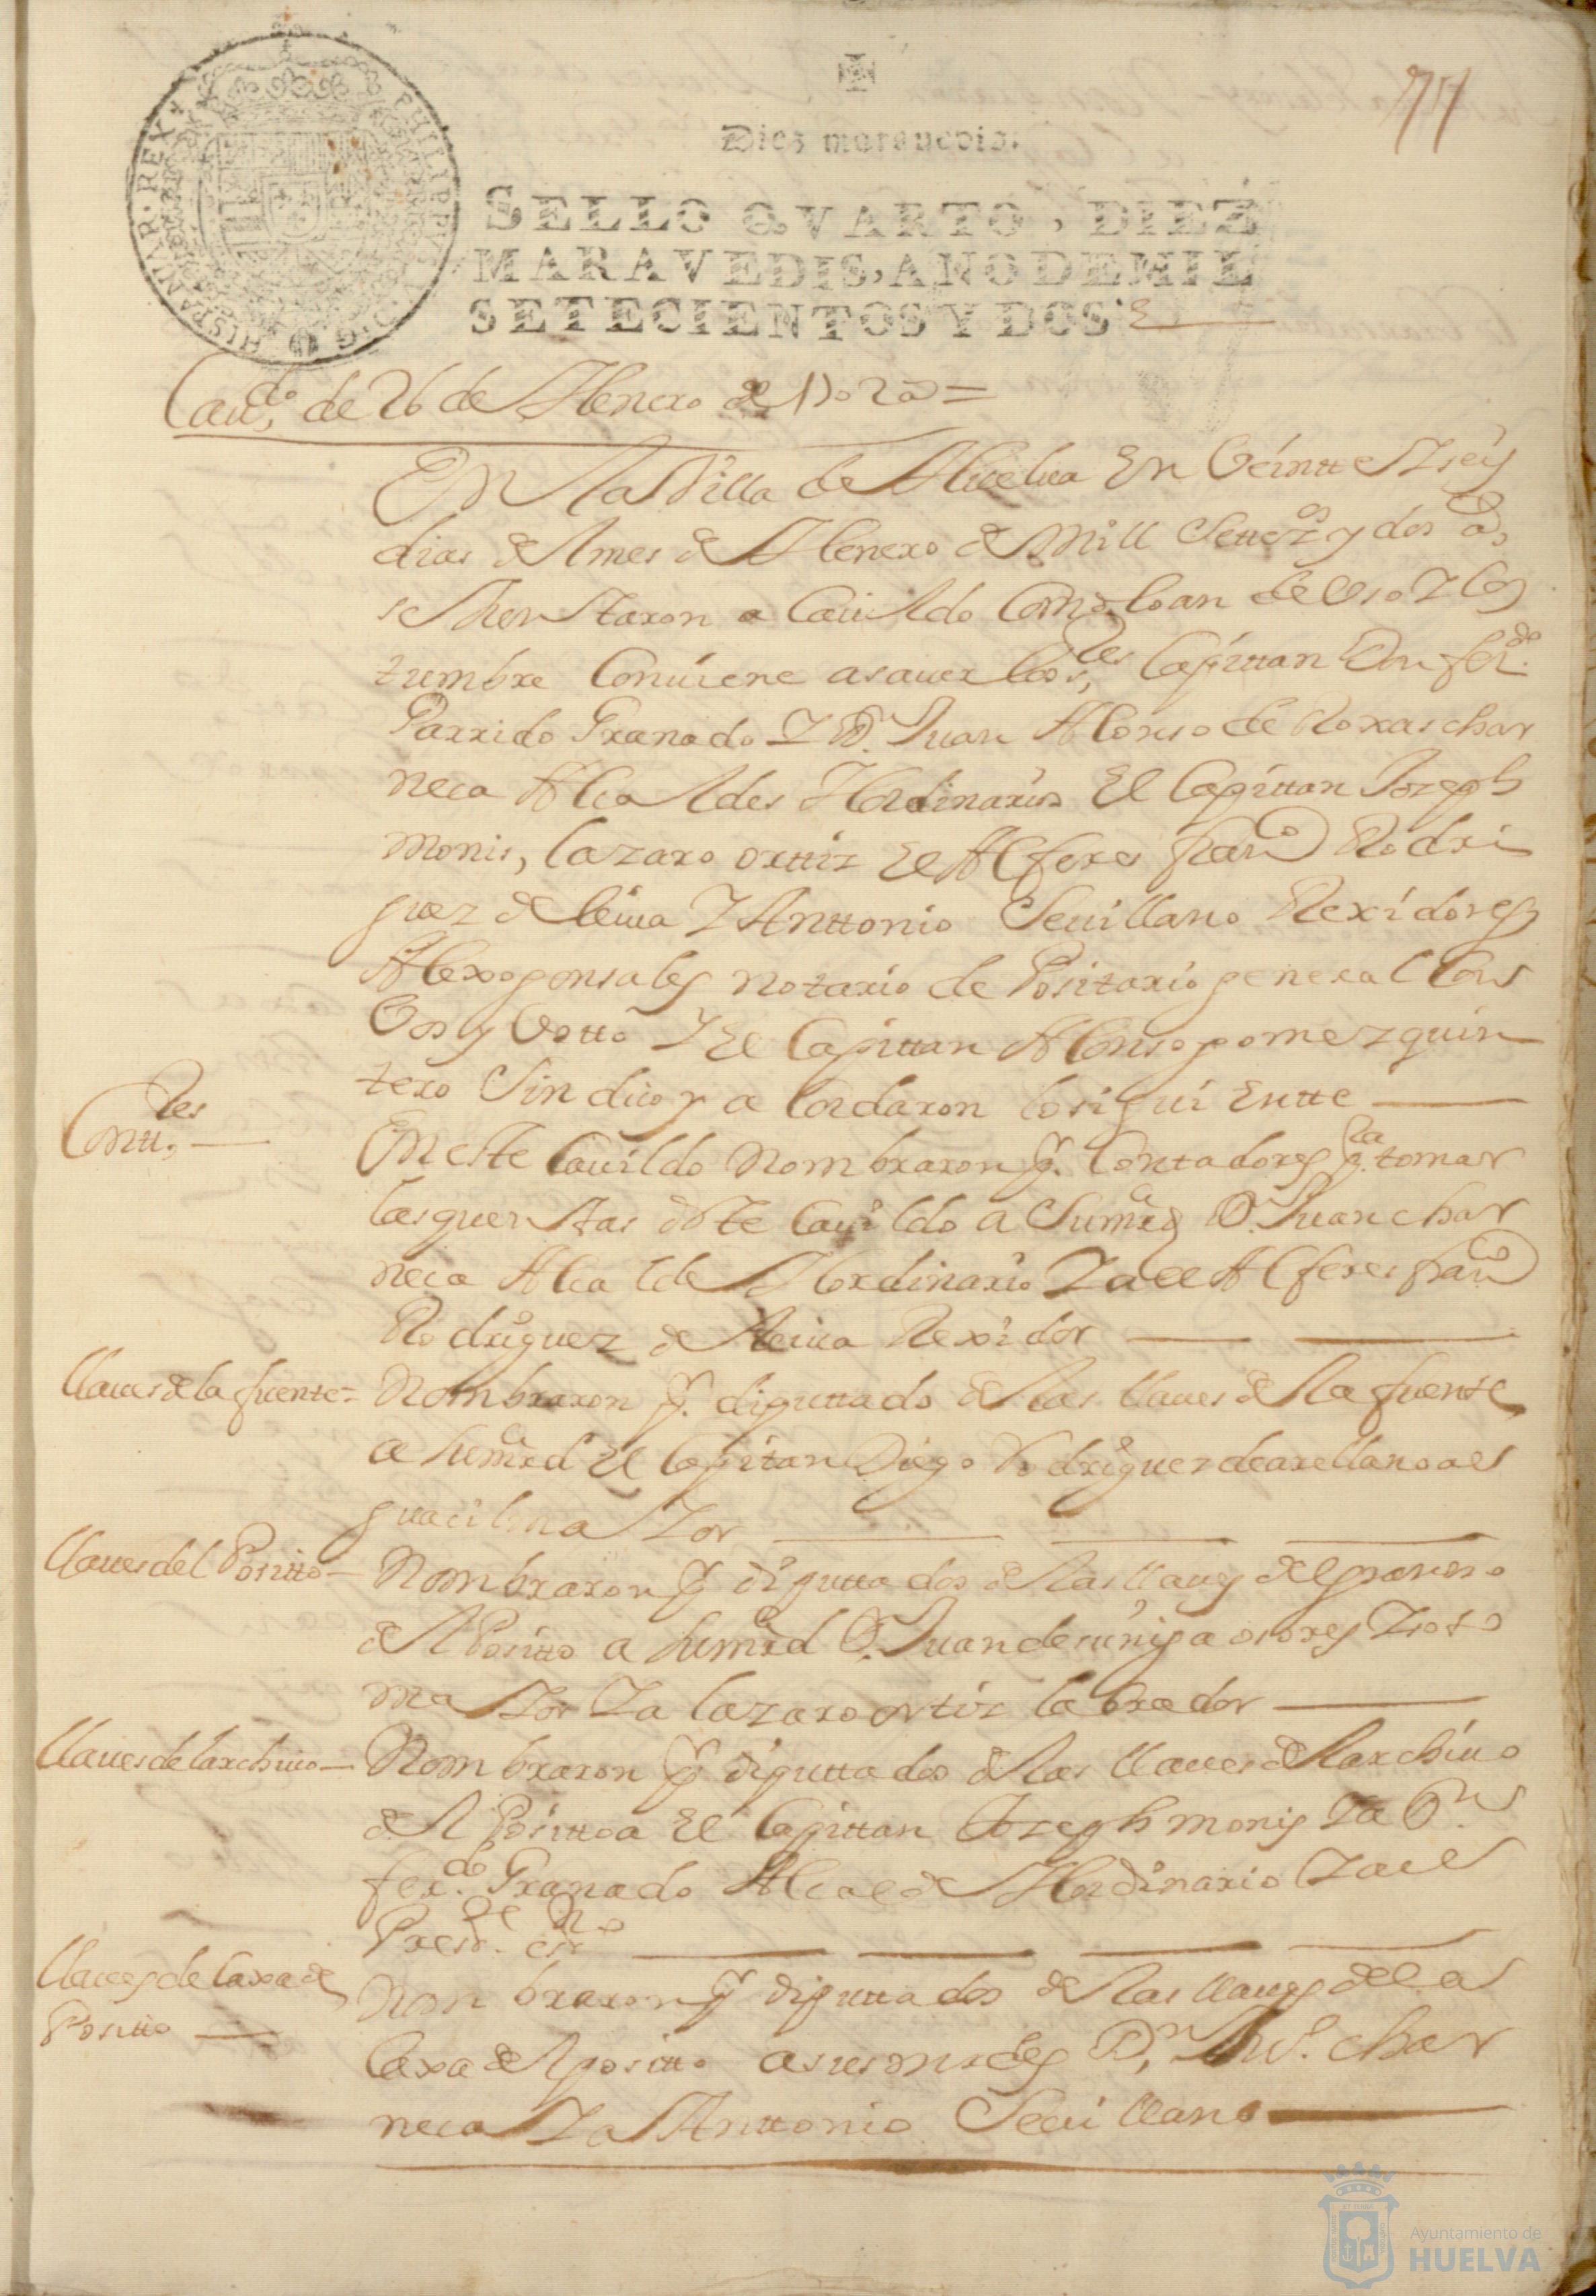 77
Diez marauedis.
SELLO QVARTO, DIEZ
MARAVEDIS, AÑO DE MIL
SETECIENTOS Y DOS.
PHILIPPVS V D G HISPANIAR REX
Caudo, de 26 de Henero de 1702 as =
En la Villa de Huelua En Veintte Y seis
dias del mes de Henero de mill Settezos y dos as,
se Juntaron a Cauildo Como lo an de Uso Y Cos
tumbre Conuiene a sauer los Capittan Don ferdo
Garrido Granado Y D. Juan Alonso de Roxas char
neca Alcaldes Hordinarios El Capittan Joseph
monis, lazaro orttiz El Alferes franco Rodri
guez de leiua Y Anttonio Seuillano Rexidores
Alexo gonsales notario depositario general Con
Vos y Votto Y El Capittan Alonso gomez quin
tero Sindico y a Cordaron lo siguiEntte
Conttles
En este Cauildo Nombraron p. Contadores pa tomar
las quentas deste Cauildo a Su mrd D. Juan char
neca Alcalde Hordinario Y a el Alferes franco
Rodriguez de Leiua Rexidor
llaues de la fuente =
Nombraron p. diputtado de las llaues de la fuente
a su mrd El Capitan Diego Rodriguez de arellano al
guacil maYor
llaues del Positto
Nombraron p diputtados de las llaues del granero
del Positto a su mrd D. Juan de suñiga osores Y soto
maYor Y a lazaro ortiz labrador
llaues del archiuo
Nombraron p diputtados de las llaues del archiuo
del Positto a El Capittan Joseph monis Y a Dn
ferdo Granado Alcalde Hordinario Y a el
Preste esno
llaues de Caxa de
Positto
Nonbraron p diputtados de las llaues de la
Caxa del positto a sus mrdes Dn Juo. char
neca Y a Anttonio Seuillano
Ayuntamiento de
HUELVA